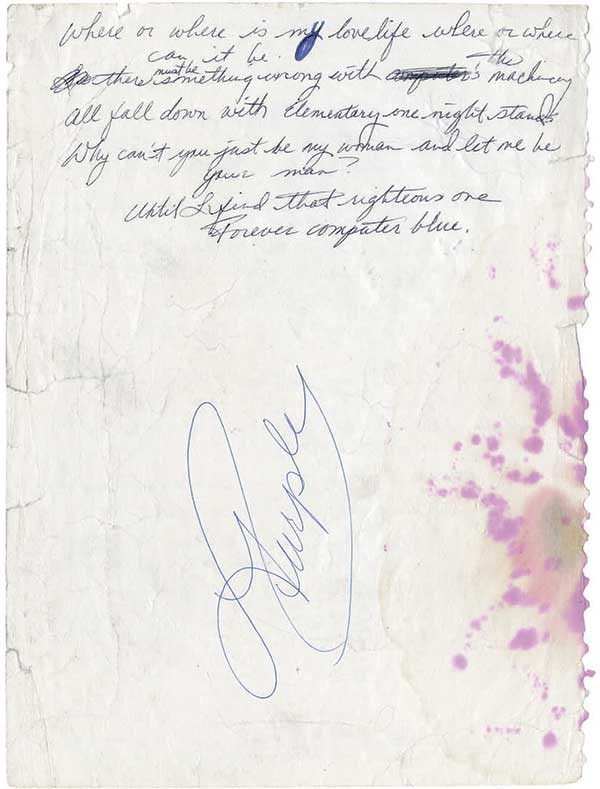 Where or where is my lovelife where or where
can it be.
there must be something wrong with the machinery
all fall down with Elementary one night stands
Why can't you just be my woman and let me be
your man?
Until I find that righteous one
Forever computer blue.
Purple